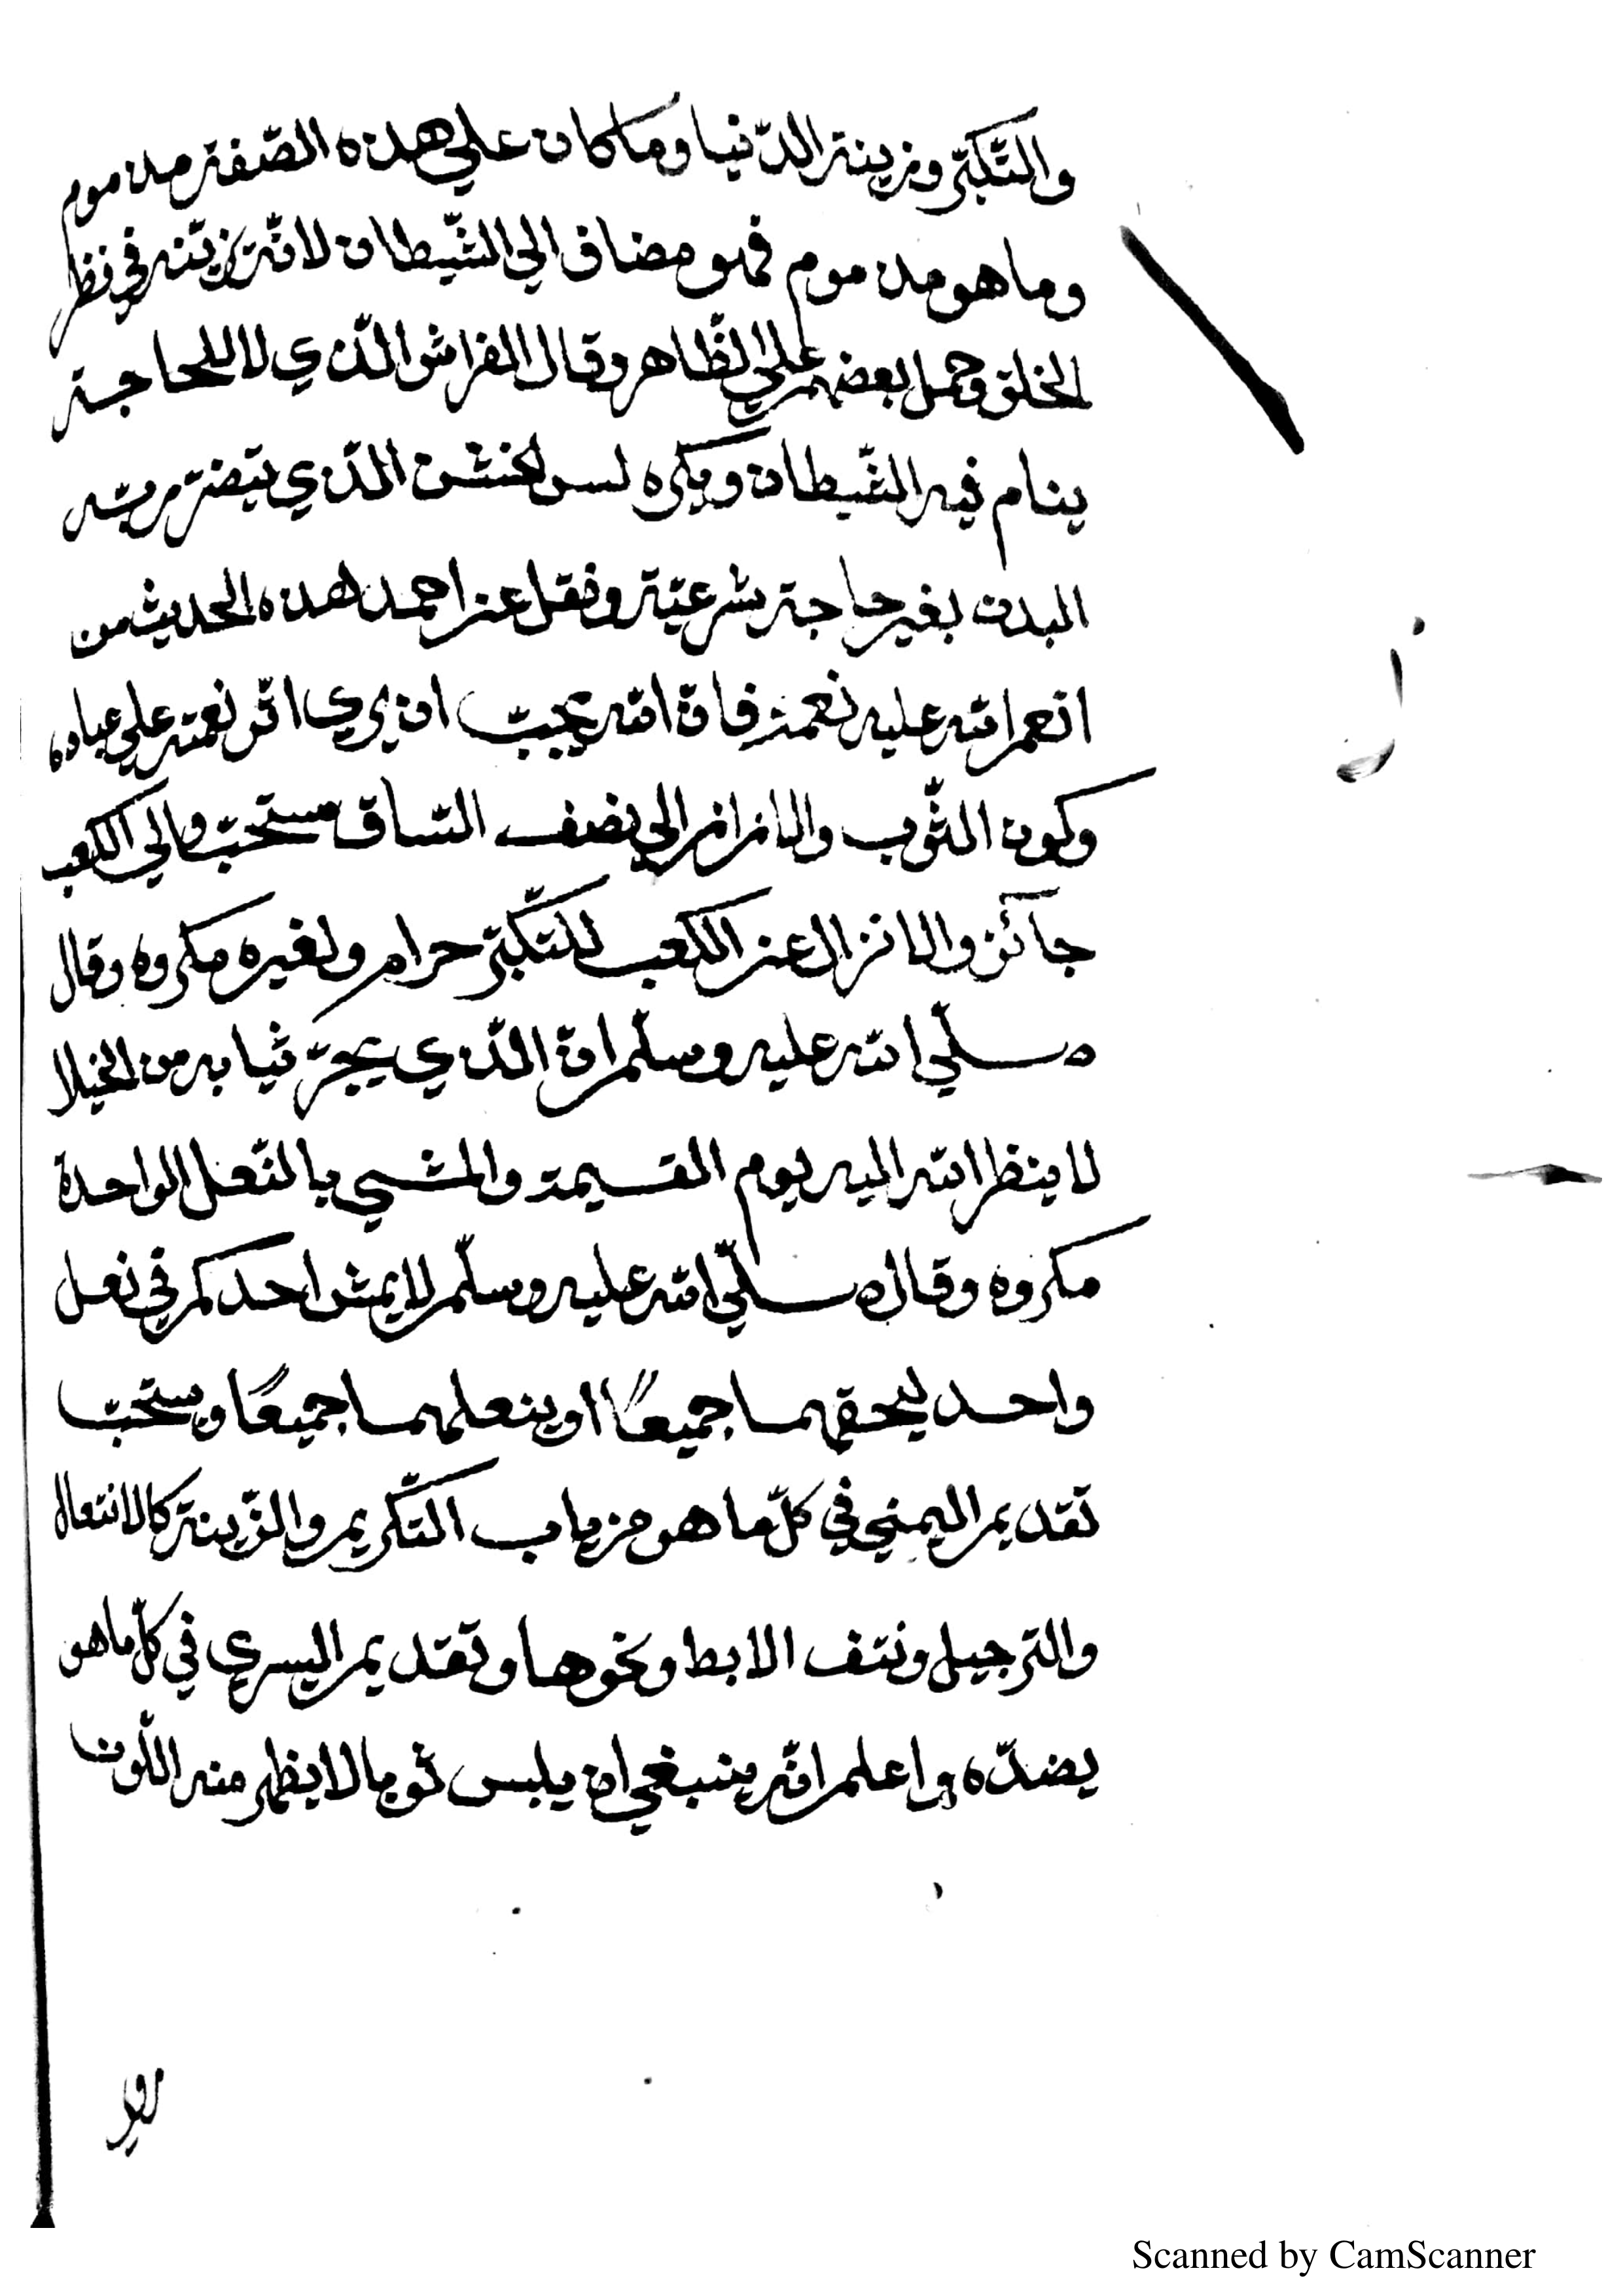 والتّكبّر وزينة الدّنيا وما كان علي هذه الصّفة مذموم
وما هو مذموم فهو مضاف الي الشّيطان لانّه يزيّنه في نظر
الخلق وحمل بعضهم علي الظّاهر وقال الفراش الّذي لا للحاجة
ينام فيه الشّيطان ويكره لبس الخشن الّذي يتضرّر به
البدن بغير حاجة شرعيّة ونقل عن احمد هذه الحديث من
انعم الله عليه نعمة فانّ الله يحبّ ان يري اثر نعمته علي عباده
وكون الثّوب والازار الي نصف السّاق مستحبّ والي الكعب
جائز والانزال عن الكعب للتّكبّر حرام ولغيره مكروه وقال
صلّي الله عليه وسلّم انّ الّذي يجرّ ثيابه من الخيلا
لا ينظر الله اليه يوم القيمة والمشي بالنّعل الواحدة
مكروه وقال صلّي الله عليه وسلّم لا يمش احدكم في نعل
واحد ليحفهما جميعًا او ينعلهما جميعًا ومستحبّ
تقديم اليمني في كلّ ما هو من باب التّكريم والزّينة كالانتعال
والترجيل ونتف الابط ونحوها وتقديم اليسري في كلّ ما هو
يضدّه واعلم انّه ينبغي ان يلبس ثوبا لا يظهر منه اللّون
Scanned by CamScanner